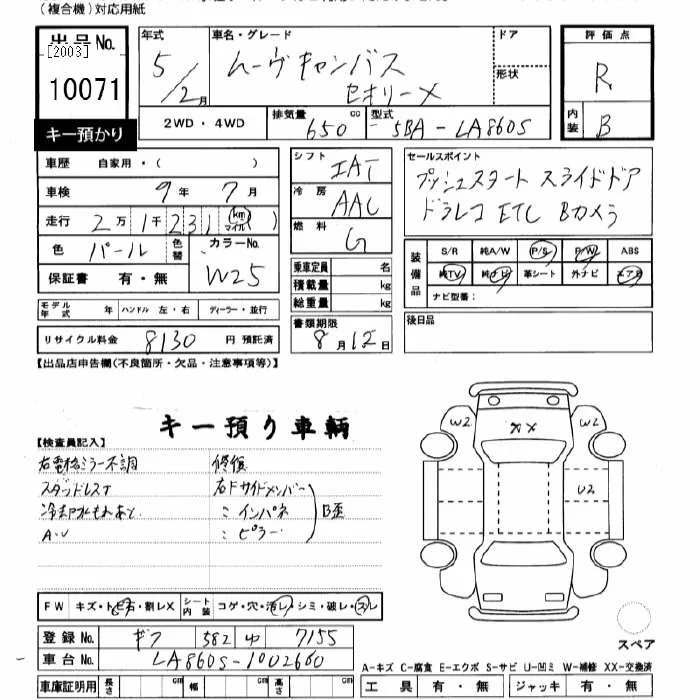 (複合機)対応用紙
出品No.
[2003]
10071
キー預かり
年式
5/2月
車名・グレード
ムーヴキャンバス
セオリーメ
ドア
形状
評価点
R
内装
B
2WD・4WD
排気量
650
cc
型式
5BA-LA860S
車歴 自家用・( )
車検 9年 7月
走行 2万1千231 (km マイル)
色 パール 色替
カラーNo.
W25
保証書 有・無
シフト IAT
冷房 AAC
燃料 G
乗車定員 名
積載量 kg
総重量 kg
セールスポイント
プッシュスタート スライドドア
ドラレコ ETC Bカメラ
装備品
S/R 純A/W P/S P/W ABS
純TV 純ナビ 革シート 外ナビ エアB
ナビ型番:
モデル年式 年 ハンドル 左・右 ディーラー・並行
リサイクル料金 8130 円 預託済
書類期限
8月12日
後日品
【出品店申告欄(不良箇所・欠品・注意事項等)】
キー預り車輌
【検査員記入】
右電格ミラー不調
スタッドレスT
冷却水もれあと
修復
右Fサイドメンバー
〃 インパネ
〃 ピラー
B歪
W2
XX
W2
U2
FW キズ・トビ石・割レX
シート内装 コゲ・穴・汚レ・シミ・破レ・スレ
スペア
登録No. ギフ 582 ゆ 7155
車台No. LA860S-1002660
車庫証明用 長さ cm 幅 cm 高さ cm
A-キズ C-腐食 E-エクボ S-サビ U-凹ミ W-補修 XX-交換済
工具 有・無 ジャッキ 有・無